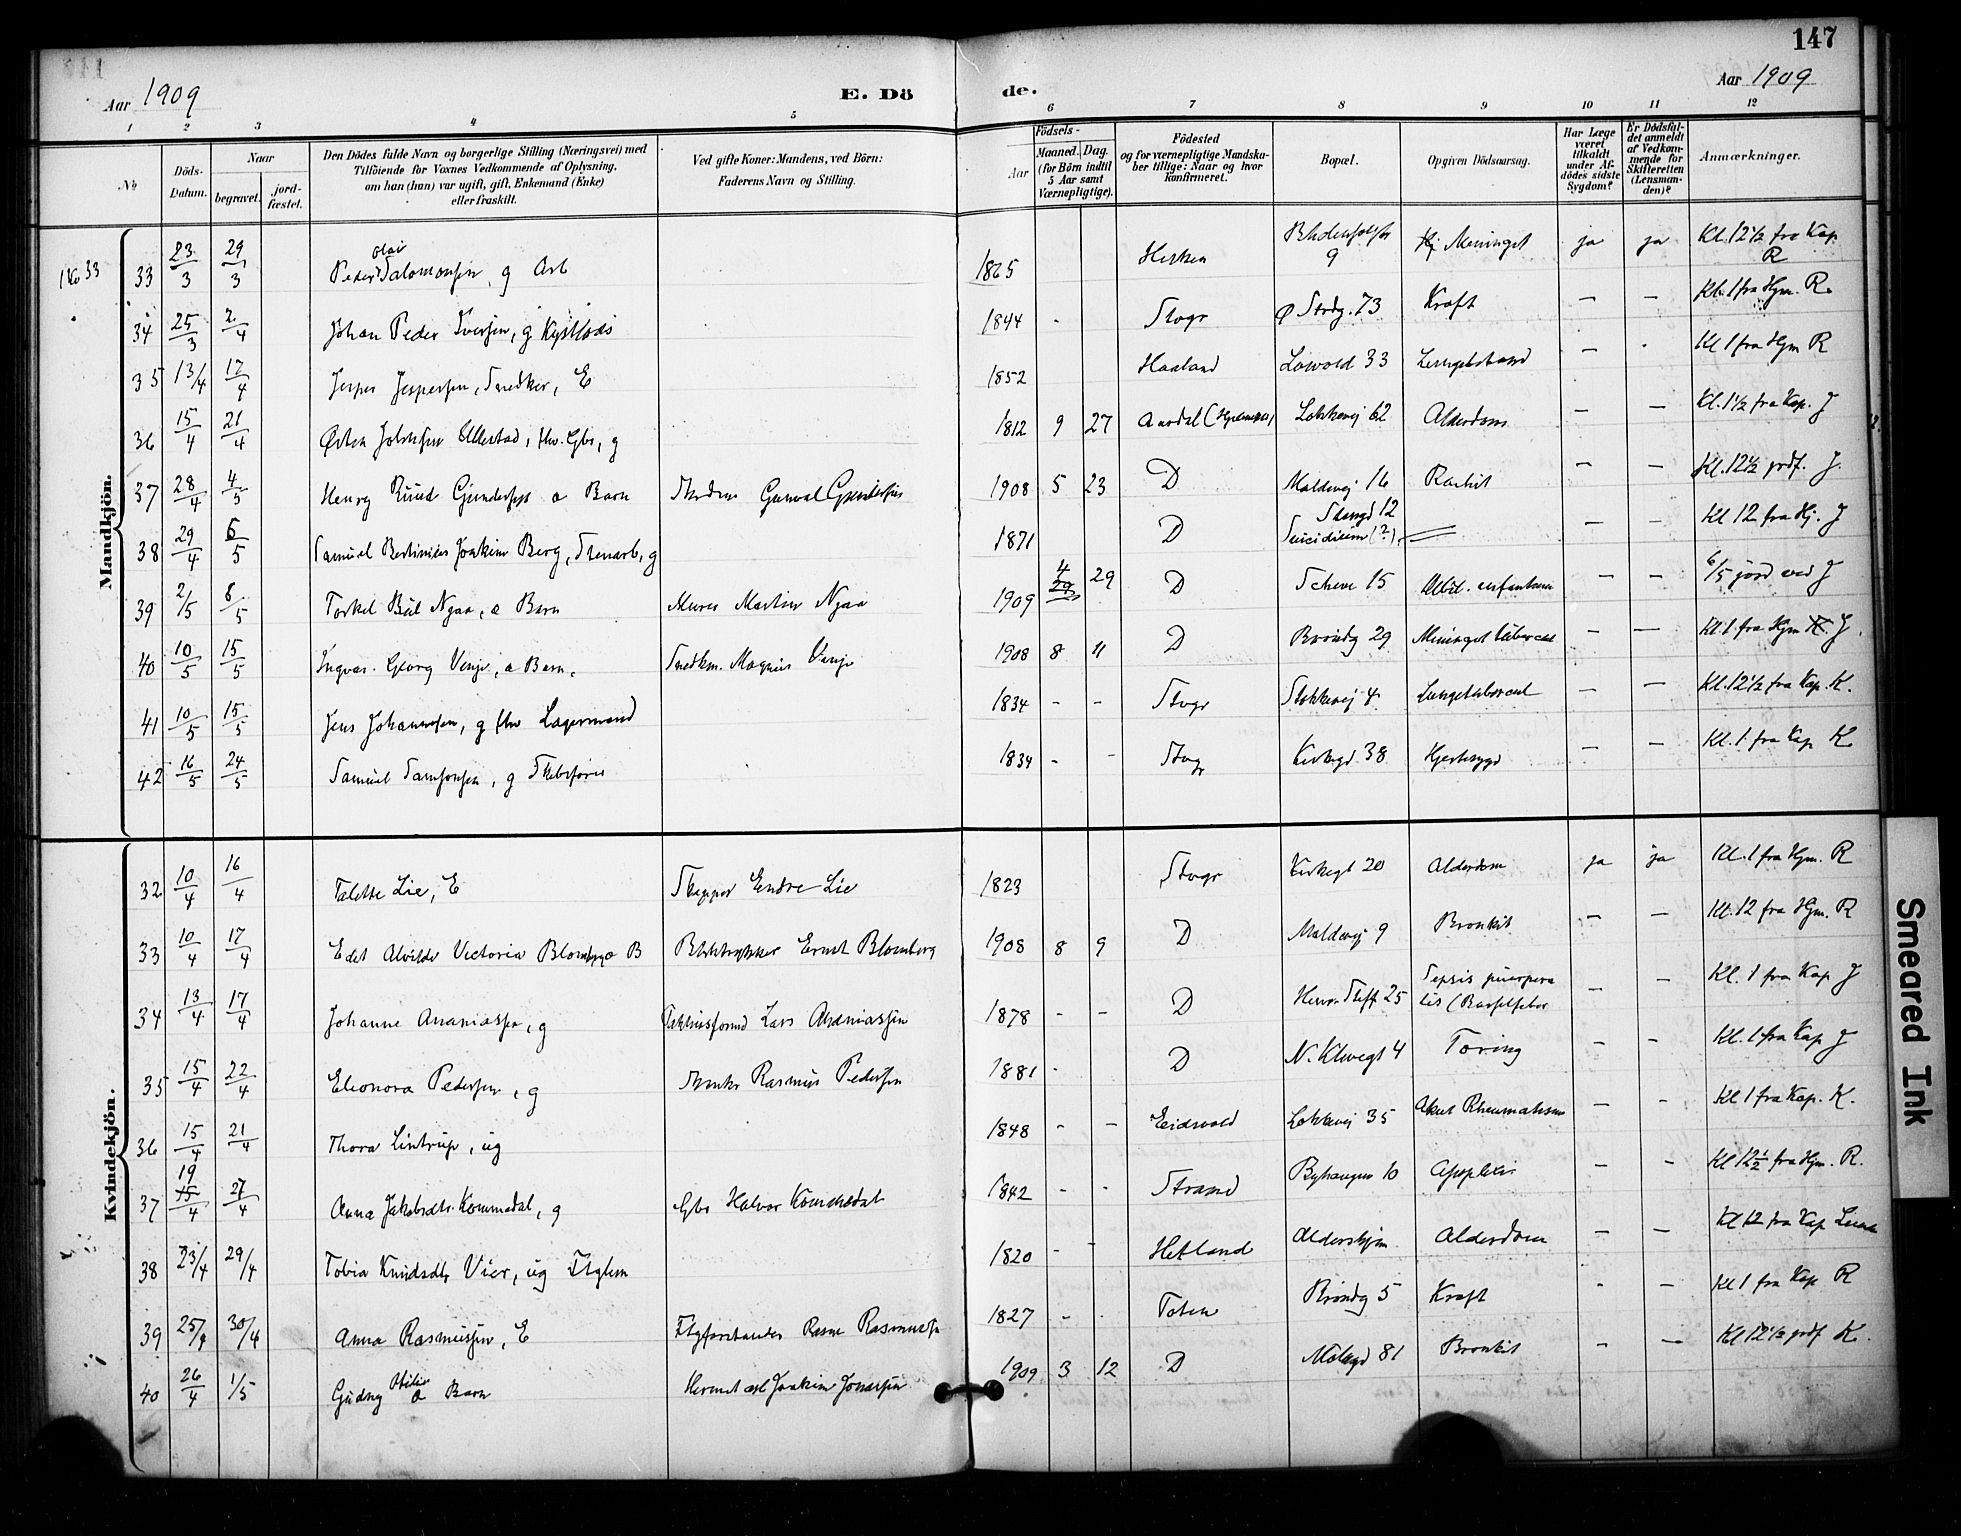 147
Aar 1909
E. Dö
de.
Aar 1909
1 2 3 4 5 6 7 8 9 10 11 12
No
Döds-Datum.
Naar
begravet.
jord-fæstet.
Den Dödes fulde Navn og borgerlige Stilling (Næringsvei) med
Tilföiende for Voxnes Vedkommende af Oplysning,
om han (hun) var ugift, gift, Enkemand (Enke)
eller fraskilt.
Ved gifte Koner: Mandens, ved Börn:
Faderens Navn og Stilling.
Födsels-
Aar
Maaned. Dag.
(for Börn indtil
5 Aar samt
Værnepligtige).
Födested
og for værnepligtige Mandska-
ber tillige: Naar og hvor
konfirmeret.
Bopæl.
Opgiven Dödsaarsag.
Har Læge
været
tilkaldt
under Af-
dödes sidste
Sygdom?
Er Dödsfal-
det anmeldt
af Vedkom-
mende for
Skifteretten
(Lensman-
den)?
Anmærkninger.
Mandkjön.
33 23/3 29/3 Peder Olai Salomonsen, g Arb 1865 9 Meninget ja ja Kl. 12 1/2 fra Kap. R
34 25/3 2/4 Johan Peder Iversen, g Kystlods 1844 - Stvgr Ø Strdg. 73 Kræft — — Kl. 1 fra Hjm. R.
35 13/4 17/4 Jesper Jespersen, Snedker, E 1852 Haaland Løvold 33 — Kl 1 fra Hjm R
36 15/4 21/4 Østen Ellestad, fhv. Gbr, g 1812 9 27 Aardal Løkkevej 62 Alderdom — — Kl. 1 1/2 fra Kap. J
37 28/4 4/5 Henry Gundersen a Barn Gunval Gundersen 1908 5 23 D Møldevej 16 Rachit — — Kl. 12 1/2 J.
38 29/4 5/5 Samuel Joakim Berg, Stenarb, g 1871 D 12 Suicidium (?) — — Kl 12 fra Hj. J
39 2/5 8/5 Torkel Nyaa, a Barn Murer Martin Nyaa 1909 4 29 D 15 — — 6/5 jord ved J
40 10/5 15/5 Ingvar Georg Venje, a Barn. Snedkm. Magnus Venje 1908 8 11 D Brøndg 29 Meninget tubercul — — Kl 1 fra Hjm J.
41 10/5 15/5 Jens Johannesen, g fhv Lagermand 1834 - - Stvgr Løkkevej 4 Lungetubercul — — Kl. 12 1/2 fra Kap. K.
42 16/5 24/5 Samuel Samsonsen, g Skibsfører 1834 - - Stvgr Kirkegd 38 Hjertesygd — — Kl. 1 fra Kap K.
Kvindekjön.
32 10/4 16/4 Talette Lie, E Skipper Endre Lie 1823 Stvgr Kirkegt 20 Alderdom ja ja Kl. 1 fra Hjm. R
33 10/4 17/4 Edel Alvilde Victoria Blomberg a B Bliktrykker Ernst Blomberg 1908 8 9 D Møldevej 9 Bronkit — — Kl. 12 fra Hjm. R
34 13/4 17/4 Johanne Ananiassen, g Lars Ananiassen 1878 - - D 25 Sepsis puerpera
lis (Barselfeber — — Kl. 1 fra Kap J
35 15/4 22/4 Eleonora Pedersen, g Rasmus Pedersen 1881 - D N. Klevegt 4 Tæring — — Kl. 1 fra Kap J
36 15/4 21/4 Thora Lintrup, ug 1848 - - Eidsvold Løkkevej 35 Akut Rheumatisme — - Kl 1 fra Kap. K.
37 19/4 27/4 Anna Jakobsdtr. Kommedal, g Gbr Halvor Kommedal 1842 - - Strand Byhaugen 10 Apoplexi — — Kl 12 1/2 fra Hjm. R.
38 23/4 29/4 Tobia Knudsdtr Vier, ug 1820 - - Hetland Aldershjm Alderdom — — Kl 12 fra Kap
39 25/4 30/4 Anna Rasmussen, E Rasm Rasmussen 1827 - - Toten Brøndg 5 Kræft - — Kl 1 fra Kap R
40 26/4 1/5 Gudny Otilie a Barn Hermet arb Joakim Jonassen 1909 3 12 D 81 Bronkit — — Kl 12 1/2 K.
Smeared Ink